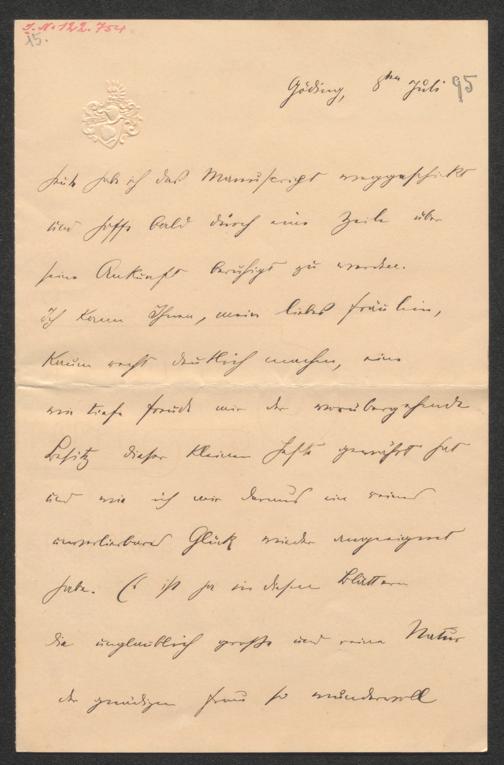 J. N. 122.754
15.
Göding, 8ten Juli 95
heute habe ich das Manuscript weggeschickt
und hoffe bald durch eine Zeile über
seine Ankunft beruhigt zu werden.
Ich kann Ihnen, mein liebes Fräulein,
kaum recht deutlich machen, eine
wie tiefe Freude mir der vorübergehende
Besitz dieser kleinen Hefte gewährt hat
und wie ich mir daraus ein reines
unverlierbares Glück wieder angeeignet
habe. Es ist ja in diesen Blättern
die unglaublich große und reine Natur
der gnädigen Frau so wundervoll